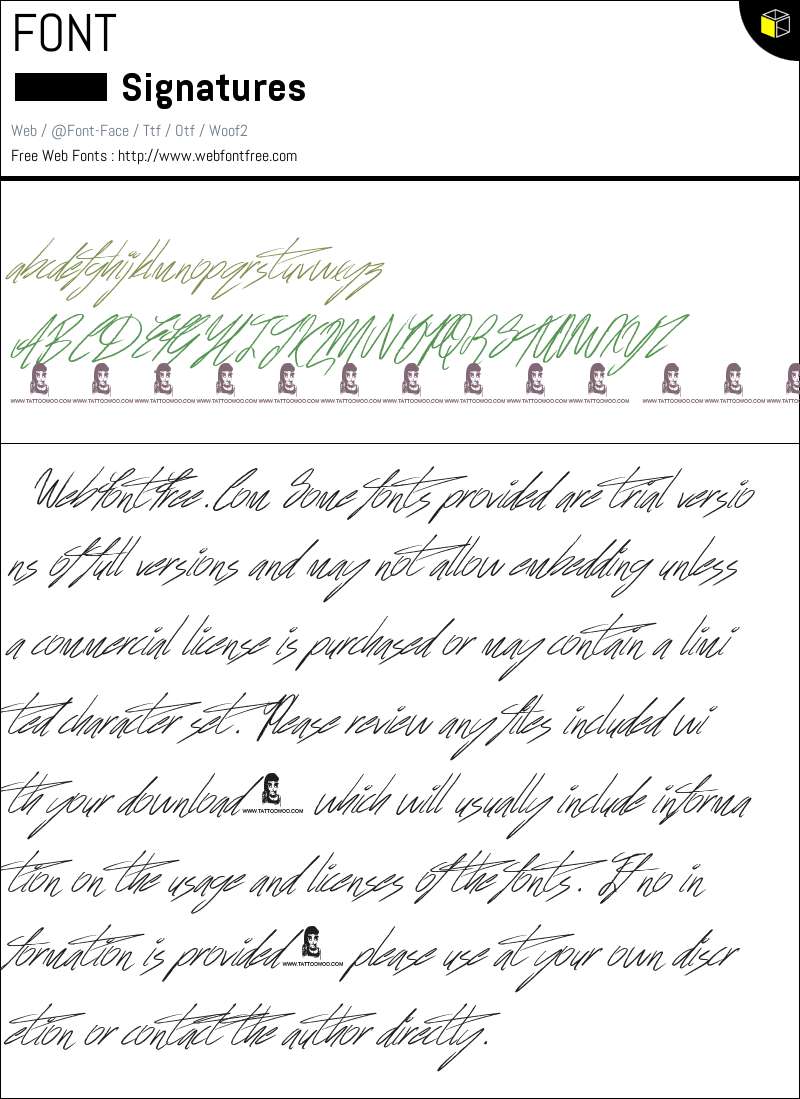 FONT
Signatures
Web / @Font-Face / Ttf / Otf / Woof2
Free Web Fonts : http://www.webfontfree.com
abcdefghijklmnopqrstuvwxyz
ABCDEFGHIJKLMNOPQRSTUVWXYZ
WWW.TATTOOWOO.COM WWW.TATTOOWOO.COM WWW.TATTOOWOO.COM WWW.TATTOOWOO.COM WWW.TATTOOWOO.COM WWW.TATTOOWOO.COM WWW.TATTOOWOO.COM WWW.TATTOOWOO.COM WWW.TATTOOWOO.COM WWW.TATTOOWOO.COM WWW.TATTOOWOO.COM WWW.TATTOOWOO.COM WWW.TAT
WebfontFree.Com Some fonts provided are trial versio
ns of full versions and may not allow embedding unless
a commercial license is purchased or may contain a limi
ted character set. Please review any files included wi
th your download WWW.TATTOOWOO.COM which will usually include informa
tion on the usage and licenses of the fonts. If no in
formation is provided WWW.TATTOOWOO.COM please use at your own discr
etion or contact the author directly.